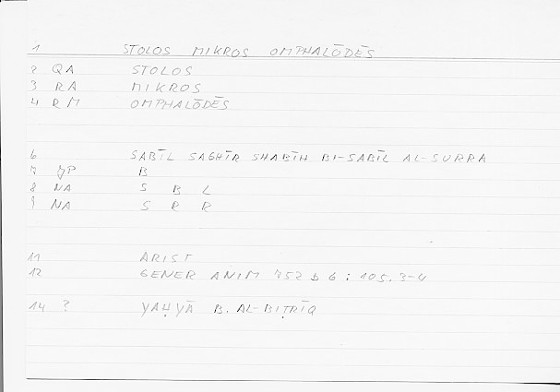 1 STOLOS MIKROS OMPHALŌDĒS
2 QA STOLOS
3 RA MIKROS
4 RM OMPHALŌDĒS
6 SABĪL SAGHĪR SHABĪH BI-SABĪL AL-SURRA
7 JP B
8 NA S B L
9 NA S R R
11 ARIST
12 GENER ANIM 752 B 6 : 105.3-4
14 ? YAḤYĀ B. AL-BIṬRĪQ